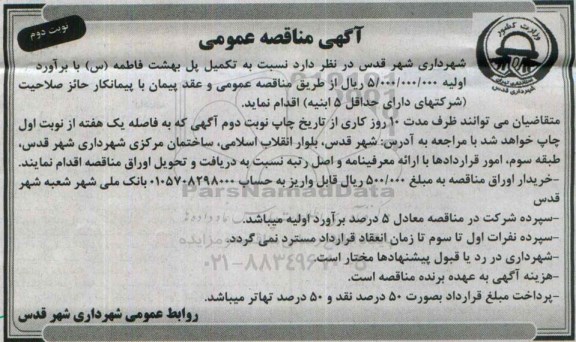 نوبت دوم
آگهی مناقصه عمومی
وزارت کشور
شهرداری قدس
شهرداری شهر قدس در نظر دارد نسبت به تکمیل پل بهشت فاطمه (س) با برآورد
اولیه ۵/۰۰۰/۰۰۰/۰۰۰ ریال از طریق مناقصه عمومی و عقد پیمان با پیمانکار حائز صلاحیت
(شرکتهای دارای حداقل ۵ ابنیه) اقدام نماید.
متقاضیان می توانند ظرف مدت ۱۰روز کاری از تاریخ چاپ نوبت دوم آگهی که به فاصله یک هفته از نوبت اول
چاپ خواهد شد با مراجعه به آدرس: شهر قدس، بلوار انقلاب اسلامی، ساختمان مرکزی شهرداری شهر قدس،
طبقه سوم، امور قراردادها با ارائه معرفینامه و اصل رتبه نسبت به دریافت و تحویل اوراق مناقصه اقدام نمایند.
-خریدار اوراق مناقصه به مبلغ ۵۰۰/۰۰۰ ریال قابل واریز به حساب ۰۱۰۵۷۰۸۲۹۸۰۰۰ بانک ملی شهر شعبه شهر
قدس
ParsNamadData
-سپرده شرکت در مناقصه معادل ۵ درصد برآورد اولیه میباشد.
-سپرده نفرات اول تا سوم تا زمان انعقاد قرارداد مسترد نمی گردد.
-شهرداری در رد یا قبول پیشنهادها مختار است.
-هزینه آگهی به عهده برنده مناقصه است.
-پرداخت مبلغ قرارداد بصورت ۵۰ درصد نقد و ۵۰ درصد تهاتر میباشد.
روابط عمومی شهرداری شهر قدس